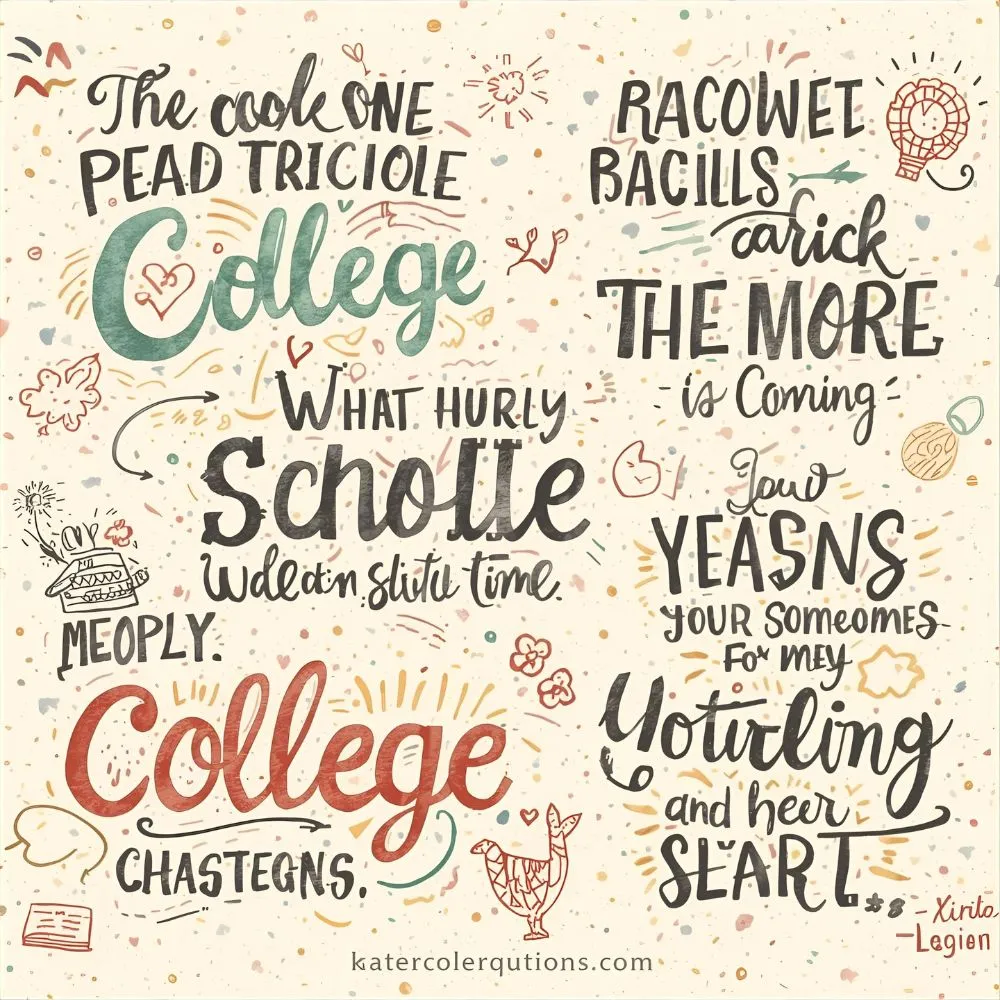 The cook ONE
PEAD TRICIOLE
College
WHAT HURLY
Scholle
Wdleotn slutu time.
MEOPLY.
College
CHASTEGNS.
RACOWET
BACILLS
carick
THE MORE
- is Coming -
YEASNS
YOUR SOMEOMES
FOR MEY
Yoturling
and heer
SLART.
- Xirito
- Legien
katercolerqutions.com